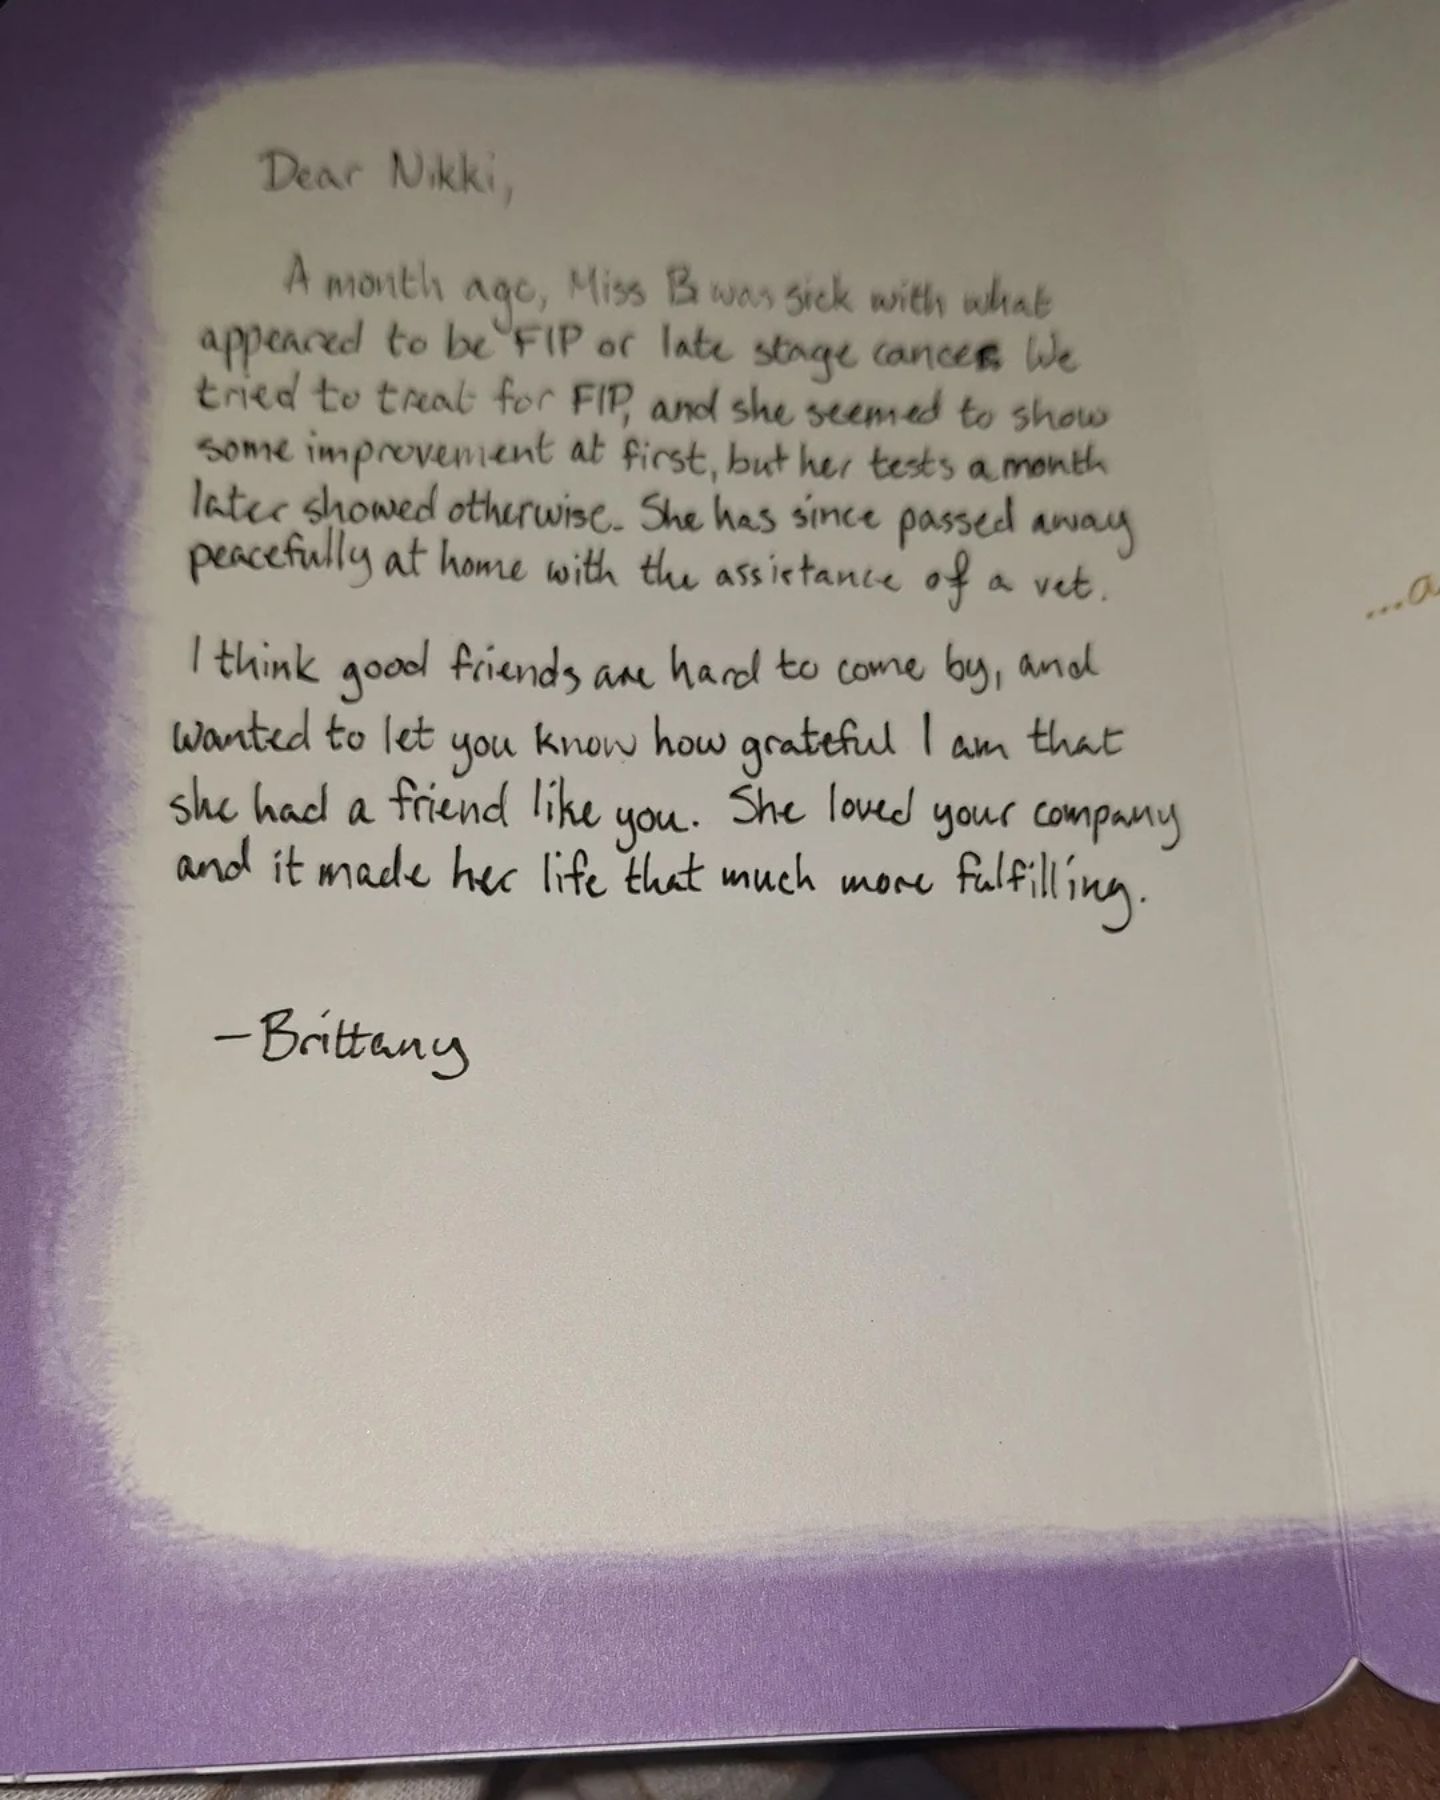 Dear Nikki,
A month ago, Miss B was sick with what
appeared to be FIP or late stage cancer. We
tried to treat for FIP, and she seemed to show
some improvement at first, but her tests a month
later showed otherwise. She has since passed away
peacefully at home with the assistance of a vet.
I think good friends are hard to come by, and
wanted to let you know how grateful I am that
she had a friend like you. She loved your company
and it made her life that much more fulfilling.
-Brittany